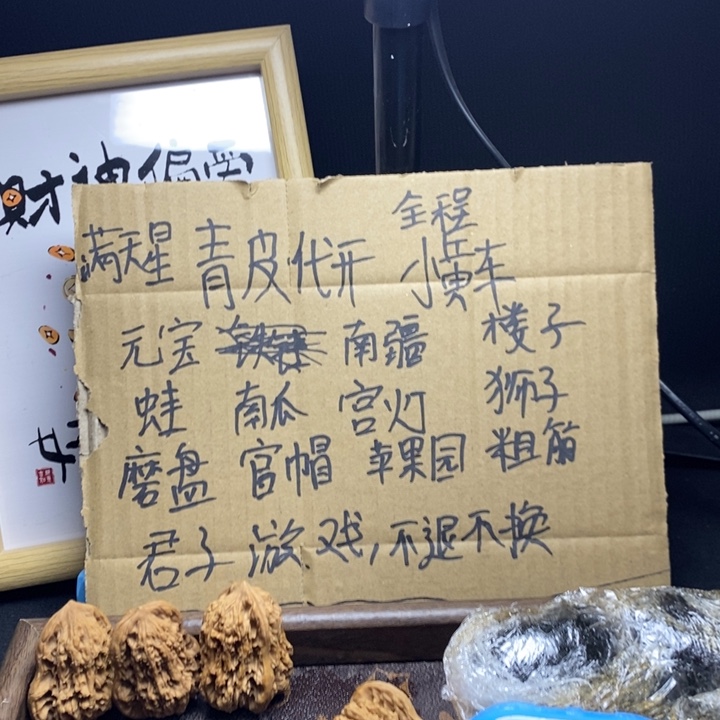 财神偏爱
全程
满天星 青皮代开 小黄车
元宝 南疆 楼子
蛙 南瓜 宫灯 狮子
磨盘 官帽 苹果园 粗筋
君子游戏,不退不换